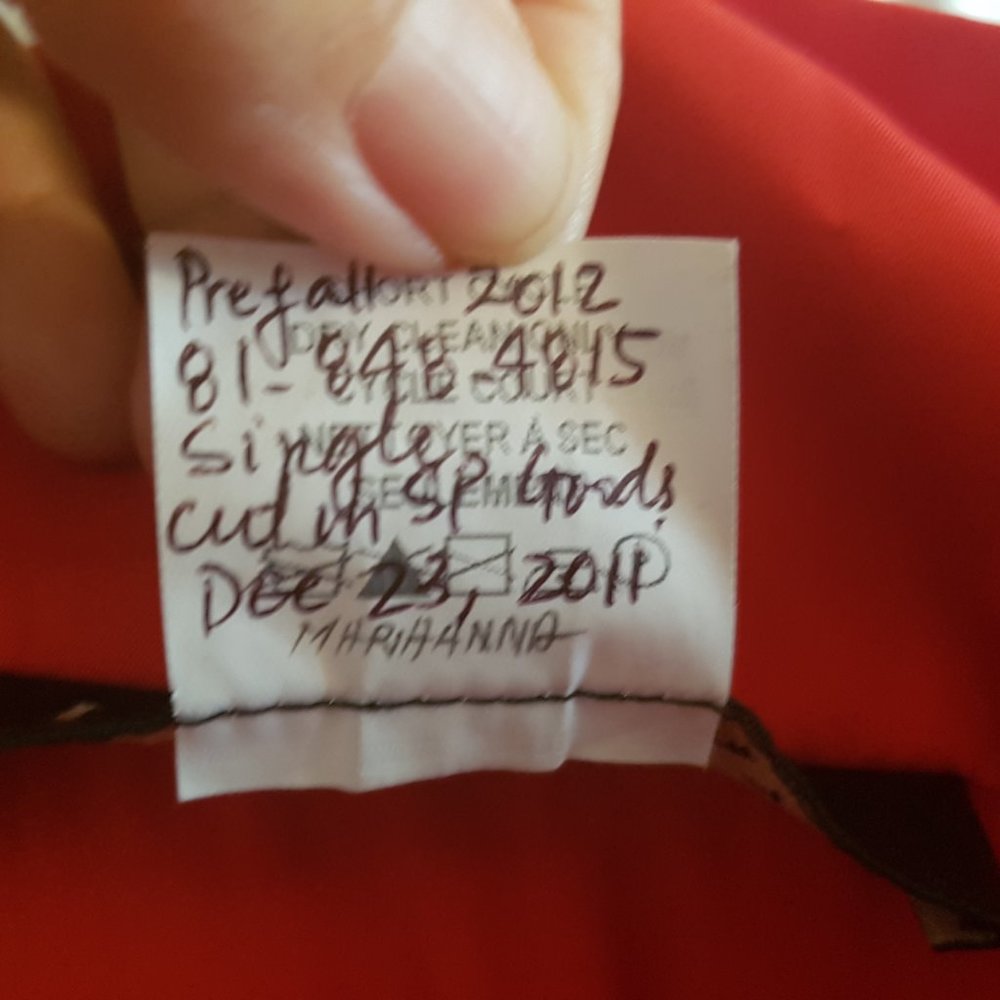 Prefall 2012
SHORT CYCLE
DRY CLEAN ONLY
81-848-4815
CYCLE COURT
NETTOYER À SEC
Single
SEULEMENT
cut in SP Goods
DEC 23, 2011
P
MARIHANNA